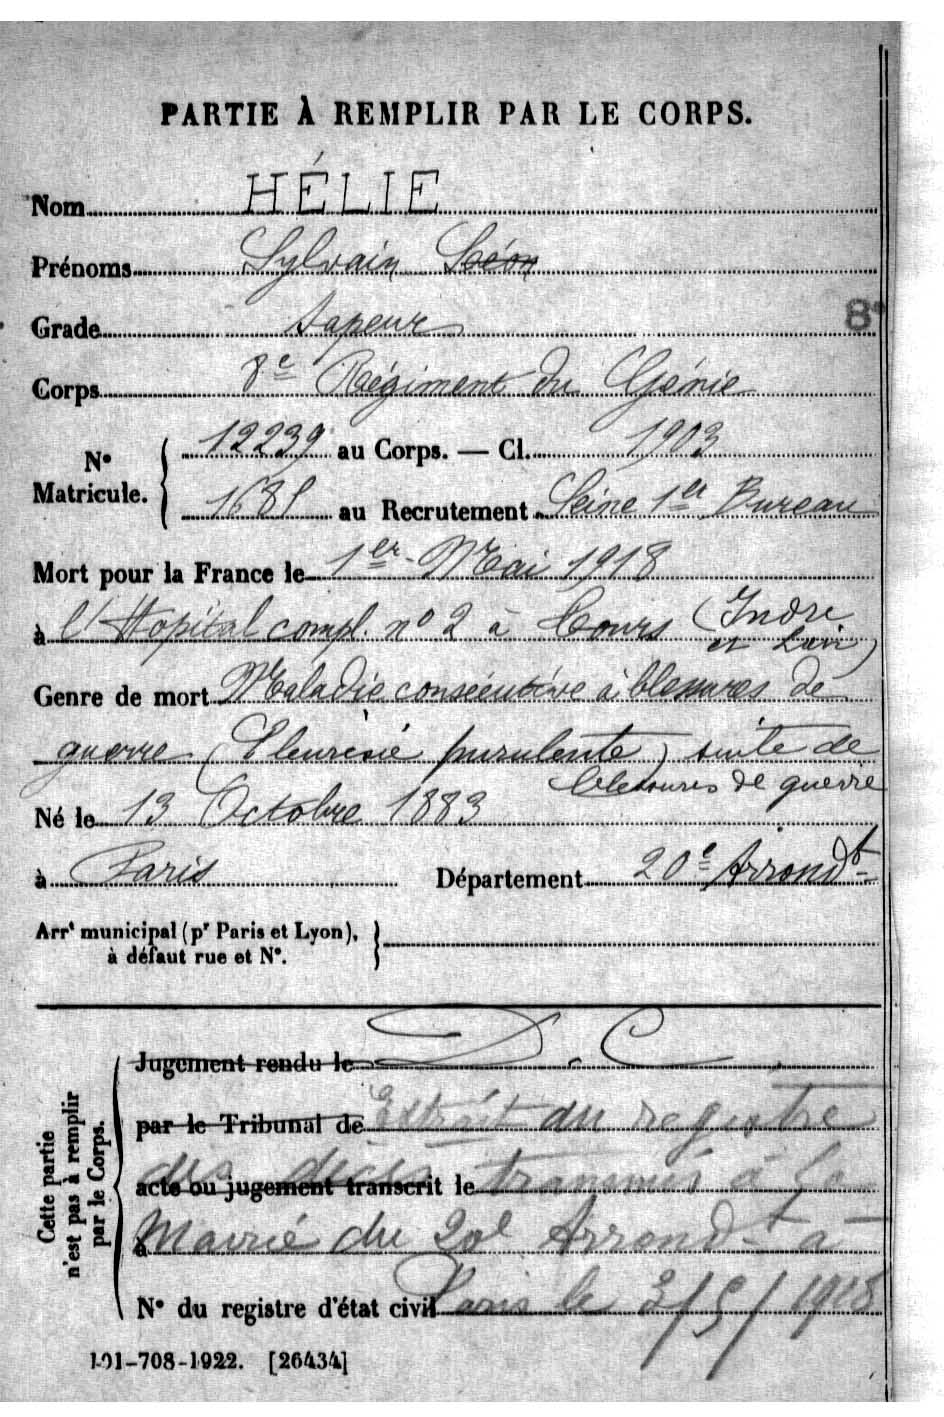 PARTIE À REMPLIR PAR LE CORPS.
Nom HÉLIE
Prénoms Sylvain Léon
Grade Sapeur
8e
Corps 8e Régiment du Génie
N° Matricule. { 12239 au Corps. — Cl. 1903
1681 au Recrutement Seine 1er Bureau
Mort pour la France le 1er Mai 1918
à l'Hopital compl. n° 2 à Tours (Indre et Loire)
Genre de mort Maladie consécutive à blessures de
guerre (Pleurésie purulente) suite de
blessures de guerre
Né le 13 Octobre 1883
à Paris Département 20e Arrondt
Arrt municipal (pr Paris et Lyon), à défaut rue et N°. }
Cette partie n'est pas à remplir par le Corps.
Jugement rendu le D. C.
par le Tribunal de Extrait du registre
acte ou jugement transcrit le des décès transmis à la
à Mairie du 20e Arrondt à
N° du registre d'état civil Paris le 3/5/1918
101-708-1922. [26434]